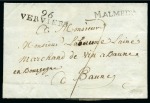 96
VERVIERS
MALMEDY
A Monsieur
Monsieur
Marchand de Vin a Beaune
en Bourgogne
a Beaune